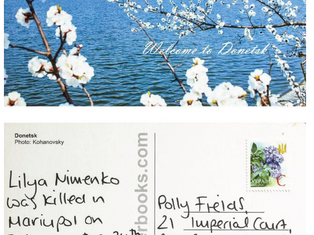 Welcome to Donetsk
Donetsk
Photo: Kohanovsky
Lilya Nimenko
was killed in
Mariupol on
rbooks.com
Polly Fields,
21 Imperial Court,